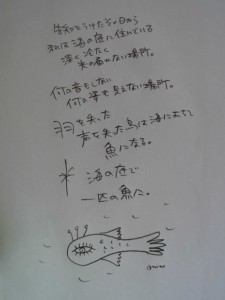 告知をうけたその日から
私は海の底に住んでいる
深く冷たく
光の届かない場所。
何の音もしない
何の姿も見えない場所。
羽を失った
声を失った鳥は海におちて
魚になる。
海の底で
一匹の魚に。